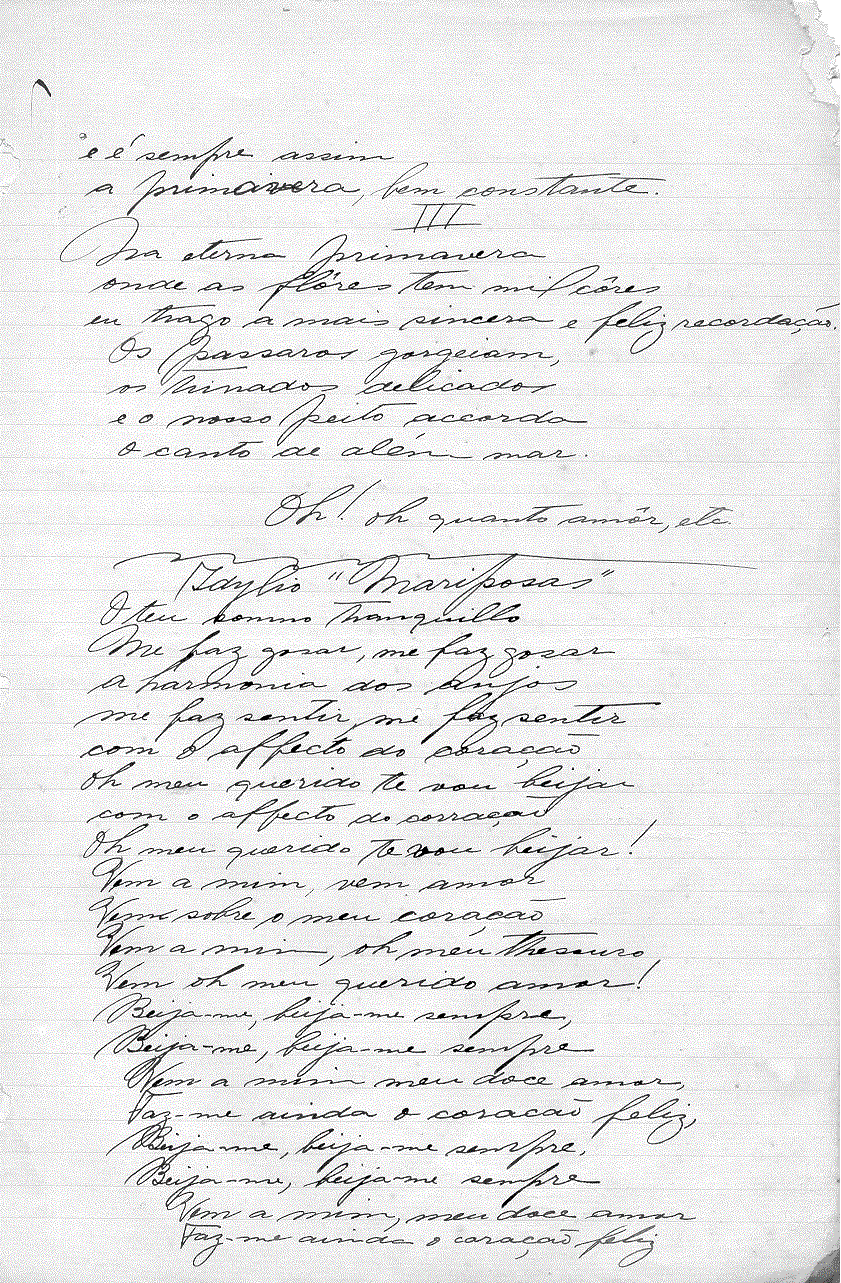 e é sempre assim
a primavera, bem constante.
III
Na eterna primavera
onde as flôres tem mil côres
eu trago a mais sincera e feliz recordação.
Os passaros gorgeiam,
os trinados delicados
e o nosso peito accorda
o canto de além mar.
Oh! oh quanto amôr, etc.
Idylio "Mariposas"
O teu somno tranquillo
Me faz gosar, me faz gosar
a harmonia dos anjos
me faz sentir, me faz sentir
com o affecto do coração
oh meu querido te vou beijar
com o affecto do corração
Oh meu querido te vou beijar!
Vem a mim, vem amor
Vem sobre o meu coração
Vem a mim, oh meu thesouro,
Vem oh meu querido amor!
Beija-me, beija-me sempre,
Beija-me, beija-me sempre
Vem a mim meu doce amor,
Faz-me ainda o coracão feliz,
Beija-me, beija-me sempre,
Beija-me, beija-me sempre
Vem a mim, meu doce amor
Faz-me ainda o coração feliz